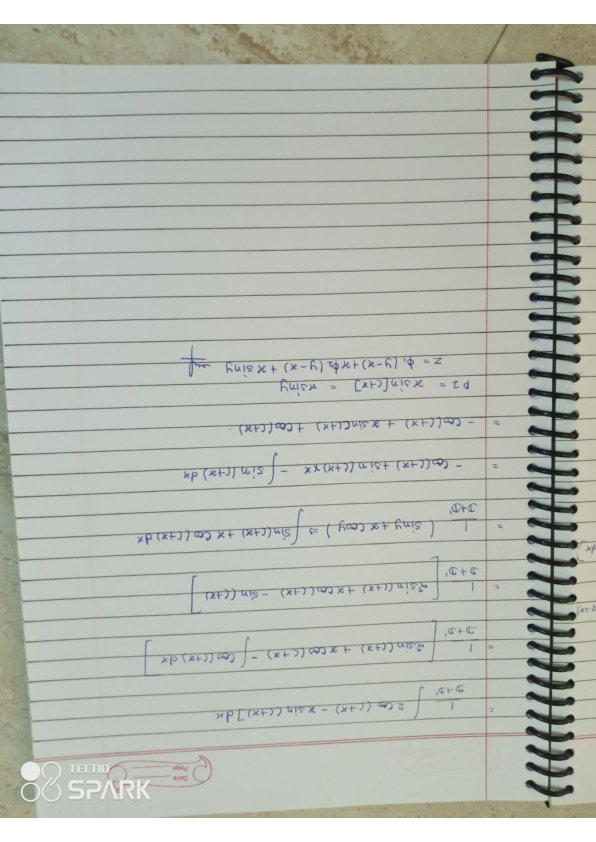 Date
Page
= 1/(D+D') ∫ 2 cos(c+x) - x sin(c+x)] dx
= 1/(D+D') [2 sin(c+x) + x cos(c+x) - ∫ cos(c+x) dx]
= 1/(D+D') [2 sin(c+x) + x cos(c+x) - sin(c+x)]
= 1/(D+D') (sin y + x cos y) ⇒ ∫ sin(c+x) + x cos(c+x) dx
= - cos(c+x) + sin(c+x) x x - ∫ sin(c+x) dx
= - cos(c+x) + x sin(c+x) + cos(c+x).
P2 = x sin[c+x] = x sin y
z = φ1(y-x) + x φ2(y-x) + x sin y
dx)
TECNO
SPARK